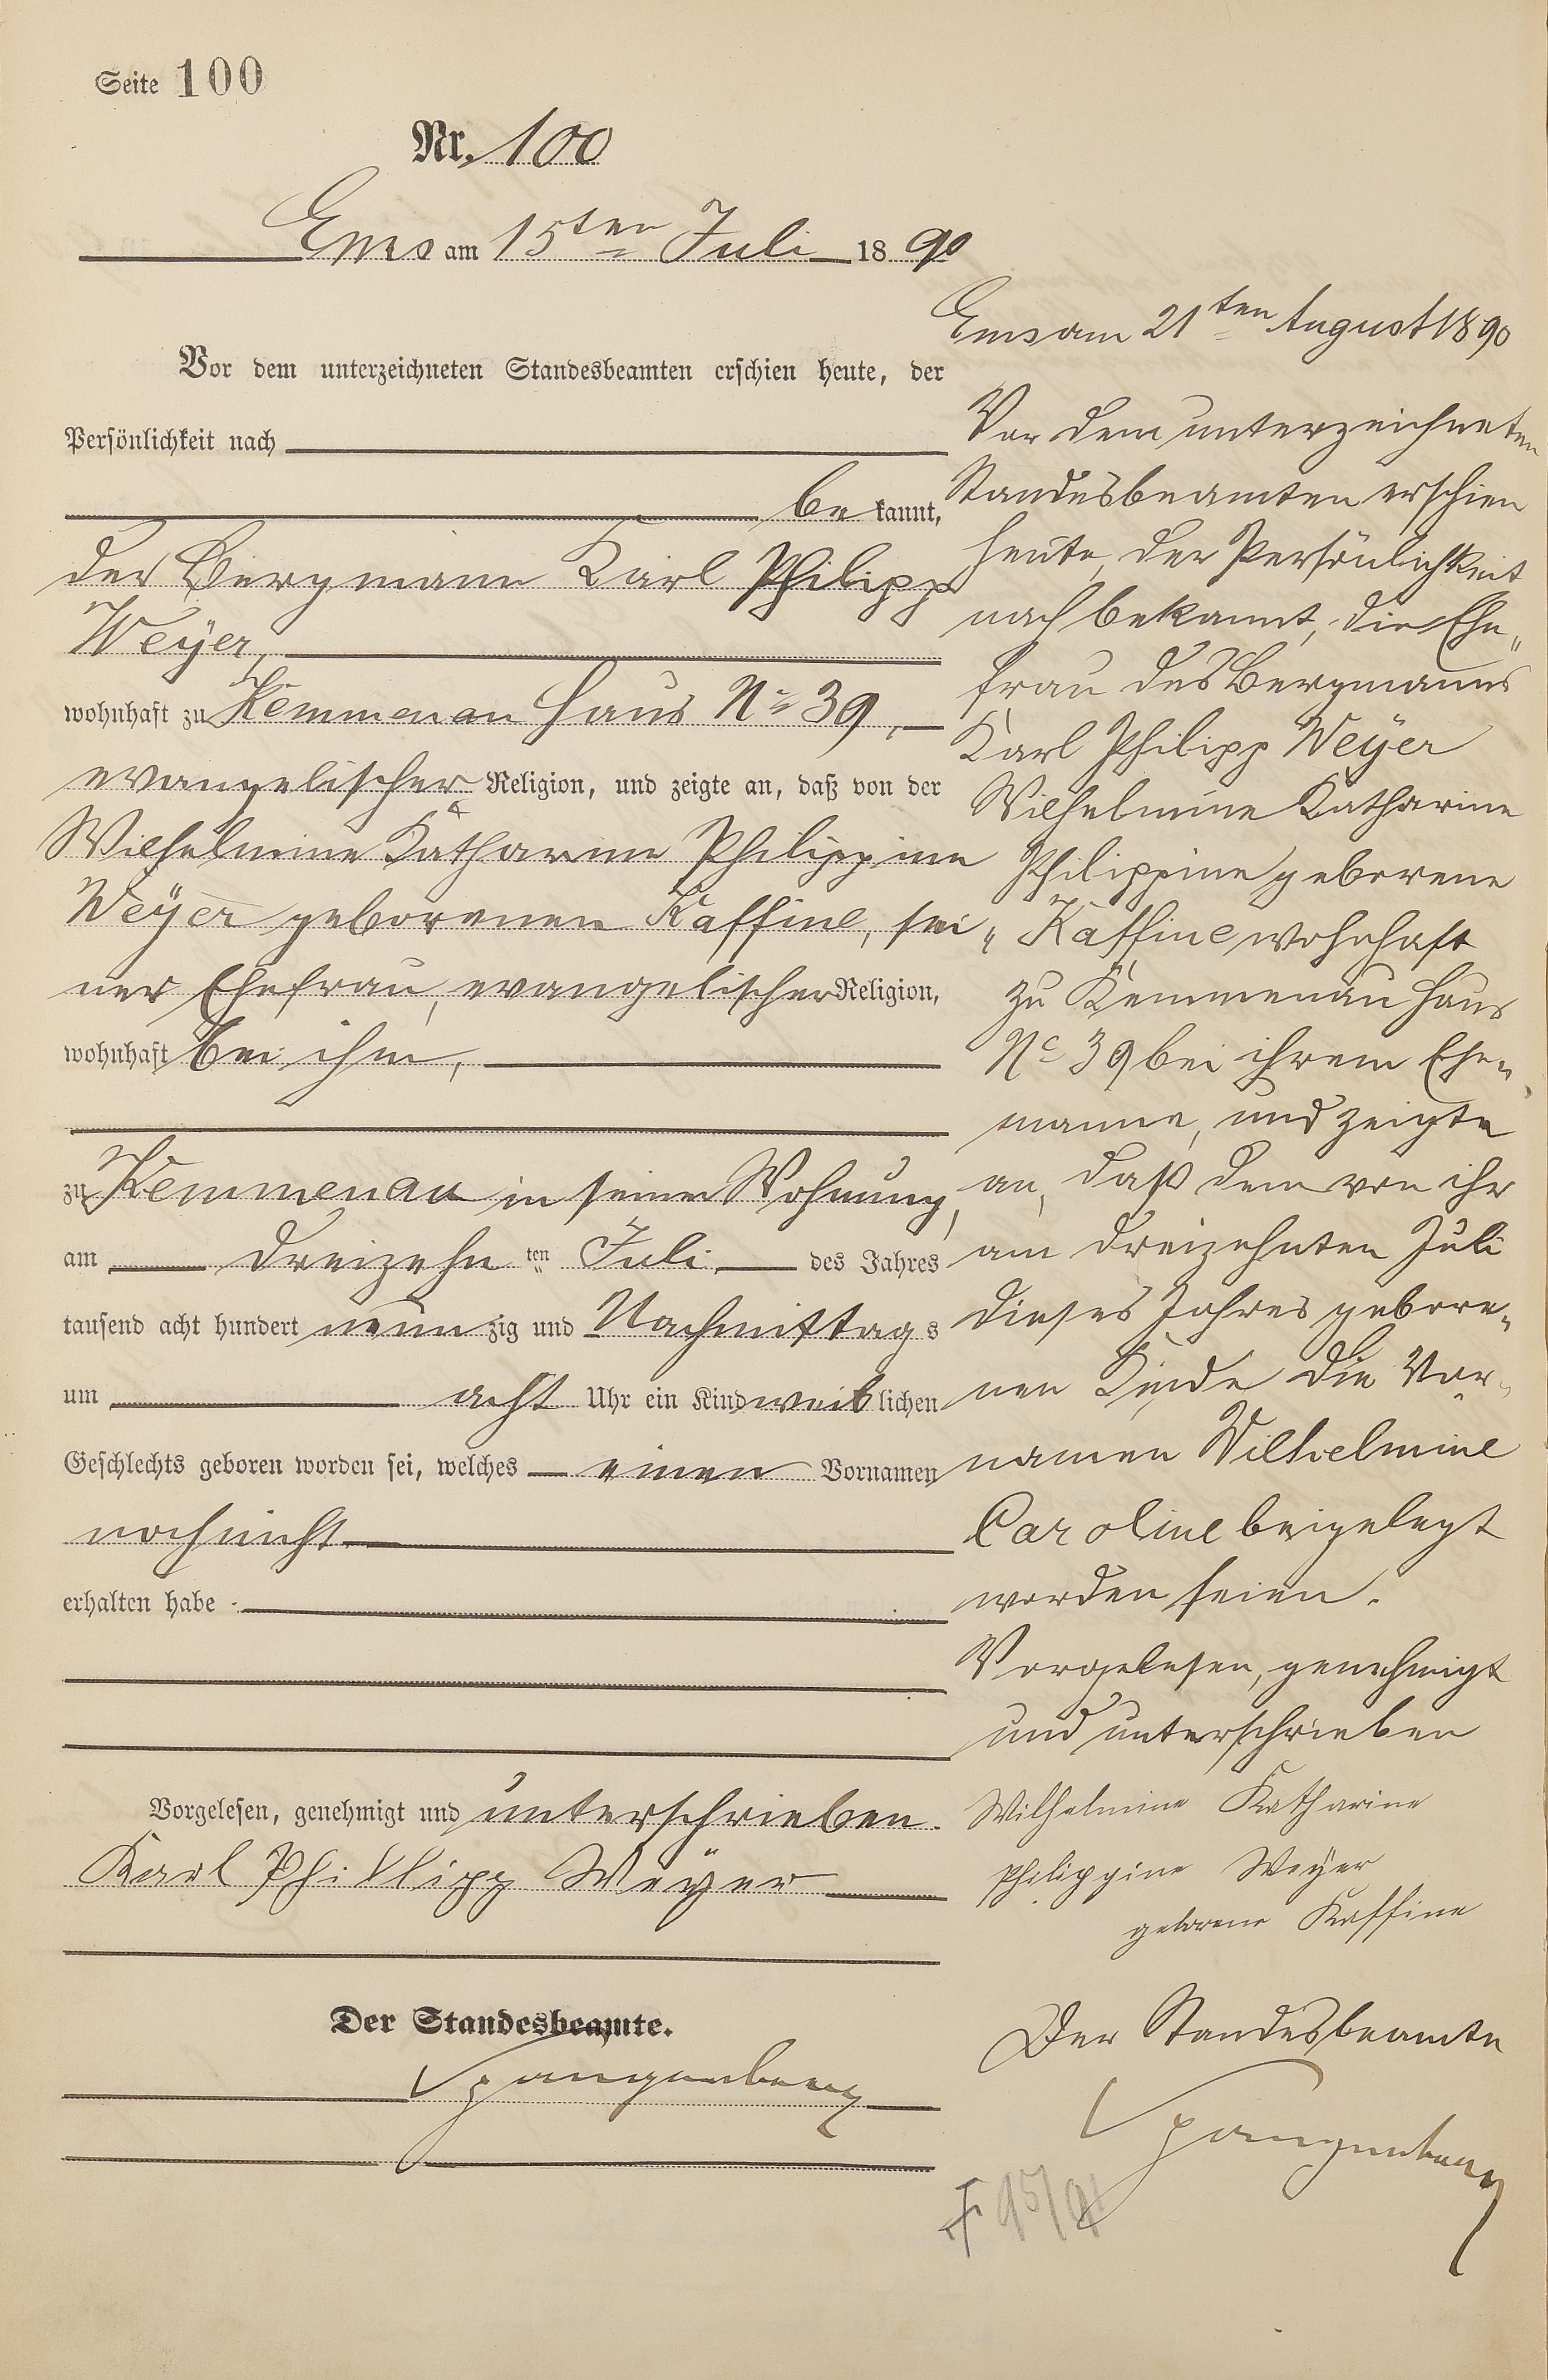 Seite 100
Nr. 100
Ems am 15ten Juli 1890
Vor dem unterzeichneten Standesbeamten erschien heute, der
Persönlichkeit nach
bekannt,
der Bergmann Karl Philipp
Weÿer,
wohnhaft zu Kemmenau Haus No 39,
evangelischer Religion, und zeigte an, daß von der
Wilhelmine Katharine Philippine
Weÿer geborenen Kaffine, sei„
ner Ehefrau, evangelischer Religion,
wohnhaft bei ihm,
zu Kemmenau in seiner Wohnung,
am dreizehnten Juli des Jahres
tausend acht hundert neunzig und Nachmittags
um acht Uhr ein Kind weiblichen
Geschlechts geboren worden sei, welches einen Vornamen
noch nicht
erhalten habe.
Vorgelesen, genehmigt und unterschrieben.
Karl Phillipp Weÿer
Der Standesbeamte.
Spangenberg
Ems am 21ten August 1890
Vor dem unterzeichneten
Standesbeamten erschien
heute, der Persönlichkeit
nach bekannt, die Ehe„
frau des Bergmanns
Karl Philipp Weÿer
Wilhelmine Katharine
Philippine geborene
Kaffine wohnhaft
zu Kemmenau Haus
No 39 bei ihrem Ehe„
manne, und zeigte
an, daß dem von ihr
am dreizehnten Juli
dieses Jahres gebore„
nen Kinde die Vor„
namen Wilhelmine
Caroline beigelegt
worden seien.
Vorgelesen, genehmigt
und unterschrieben
Wilhelmine Katharine
Philippine Weÿer
geborene Kaffine
Der Standesbeamte
Spangenberg